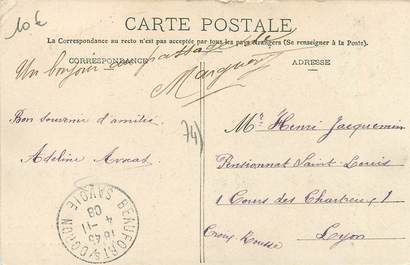 10 €
CARTE POSTALE
La Correspondance au recto n'est pas acceptée par tous les pays étrangers (Se renseigner à la Poste).
CORRESPONDANCE
ADRESSE
Un bonjour au passage de
Bon souvenir d'amitié
Adeline
74)
Mr Henri Jacquemin
Pensionnat Saint-Louis
1 Cours des Chartreux 1
Croix Rousse
Lyon
BEAUFORT-S-DORON
18 45
4 -11
08
SAVOIE